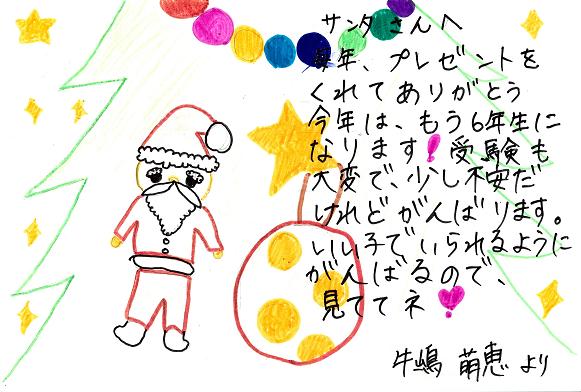 サンタさんへ
毎年、プレゼントを
くれてありがとう
今年は、もう6年生に
なります！受験も
大変で、少し不安だ
けれどがんばります。
いい子でいられるように
がんばるので、
見ててネ
牛嶋 萌恵 より